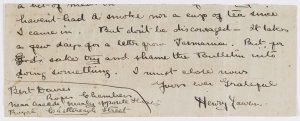 haven't had a smoke nor a cup of tea since
I came in. But don't be discouraged — It takes
a few days for a letter from Tasmania. But, for
God's sake try and shame the Bulletin into
doing something. I must close now
Yours ever Grateful
Henry Lawson
Bert Davies
Chambers
Near opposite
Castlereagh Street